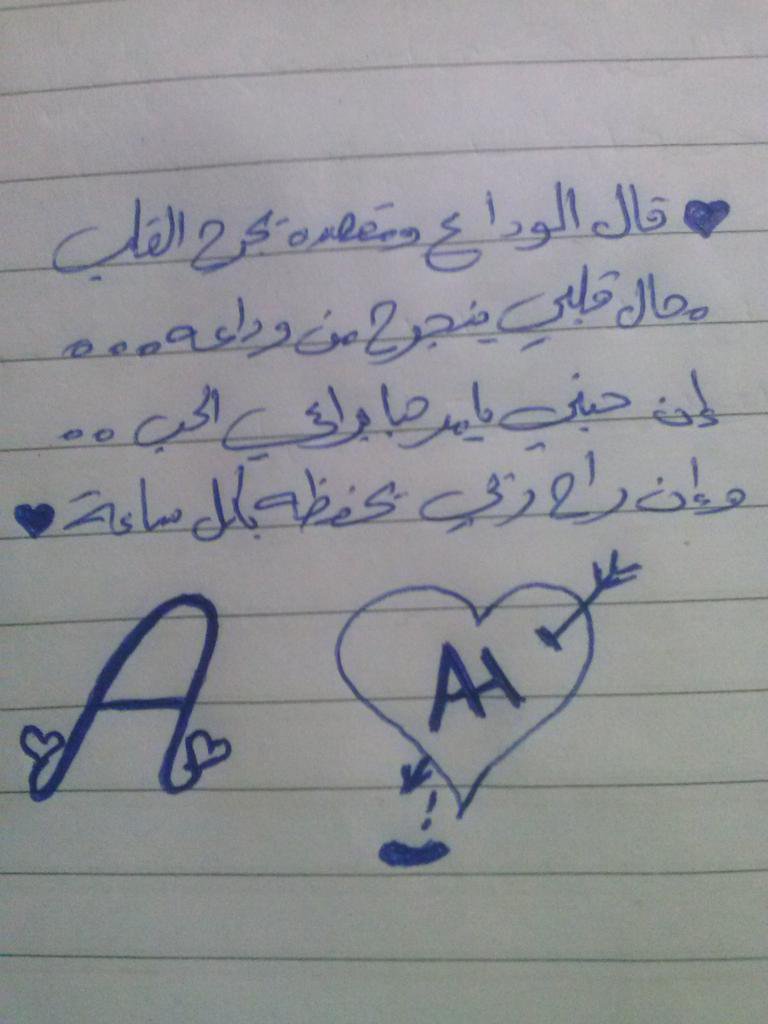 قال الوداع ومقصده تجرح القلب
محال قلبي ينجرح من وداعه...
إن حبني يامرحبا براعي الحب..
وإن راح ربي يحفظه بكل ساعة
A
AH